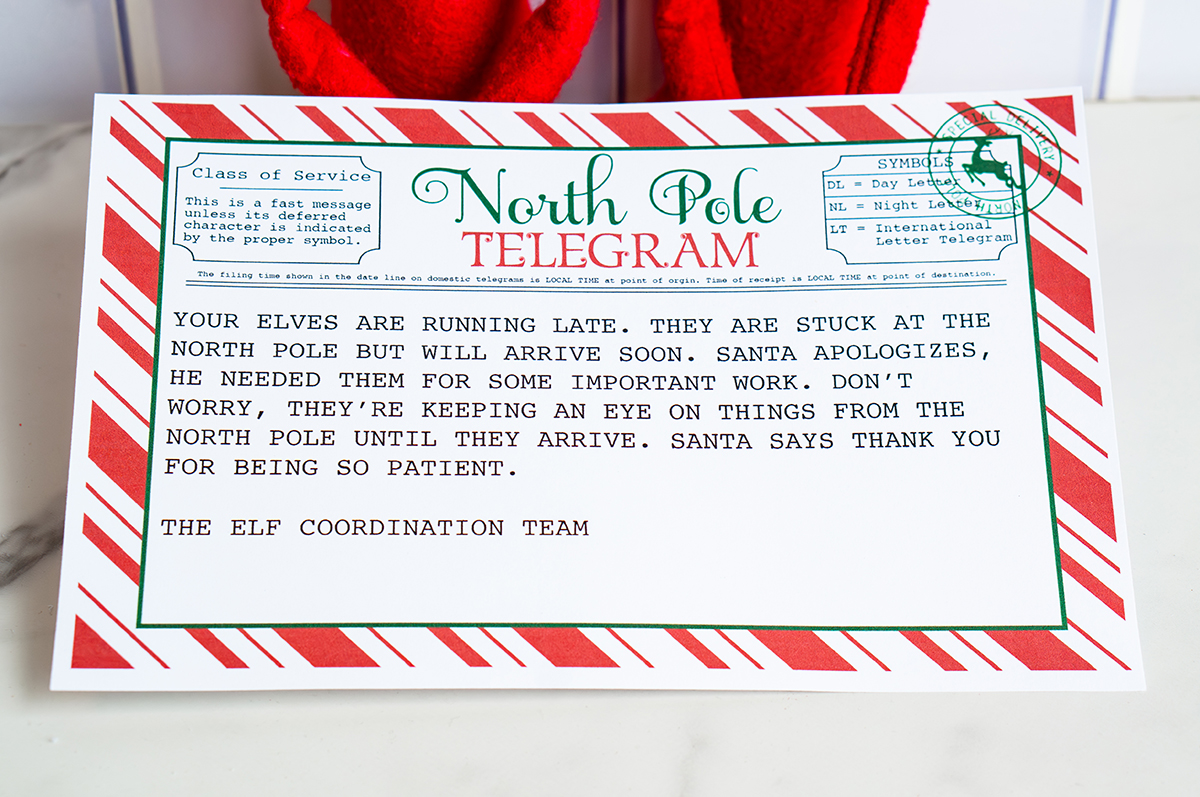 SPECIAL DELIVERY
NORTH
Class of Service
This is a fast message
unless its deferred
character is indicated
by the proper symbol.
North Pole
TELEGRAM
SYMBOLS
DL = Day Letter
NL = Night Letter
LT = International
Letter Telegram
The filing time shown in the date line on domestic telegrams is LOCAL TIME at point of orgin. Time of receipt is LOCAL TIME at point of destination.
YOUR ELVES ARE RUNNING LATE. THEY ARE STUCK AT THE
NORTH POLE BUT WILL ARRIVE SOON. SANTA APOLOGIZES,
HE NEEDED THEM FOR SOME IMPORTANT WORK. DON'T
WORRY, THEY'RE KEEPING AN EYE ON THINGS FROM THE
NORTH POLE UNTIL THEY ARRIVE. SANTA SAYS THANK YOU
FOR BEING SO PATIENT.
THE ELF COORDINATION TEAM